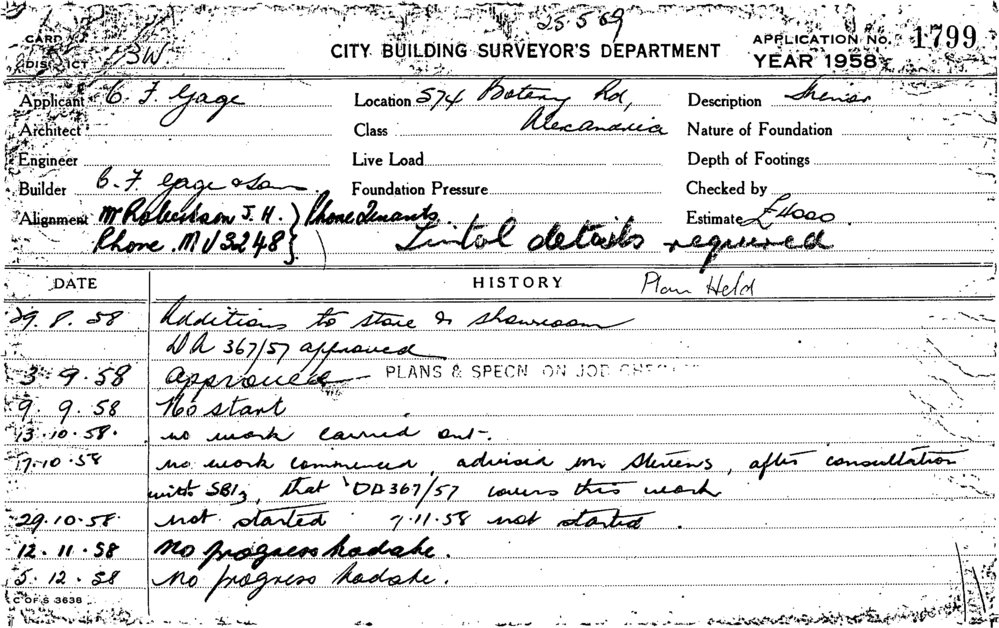 25.5.69
CARD
DISTRICT 13W.
CITY BUILDING SURVEYOR'S DEPARTMENT
APPLICATION No. 1799
YEAR 1958
Applicant C. F. Gage
Location 574 Botany Rd,
Alexandria
Description
Architect
Class
Nature of Foundation
Engineer
Live Load
Depth of Footings
Builder C. F. Gage & Son
Foundation Pressure
Checked by
Alignment Mr Robertson J. H. ) Phone Tenants.
Estimate £4000
Phone. MU3248 }
Lintol details required
DATE
HISTORY
Plan Held
29. 8. 58 Additions to store & showroom
DA 367/57 approved
3 9.58 approved PLANS & SPECN ON JOB
9. 9. 58 No start
13.10.58. no work carried out.
17.10.58 no work commenced, advised Mr Stevens, after consultation
with SBI, that DD367/57 covers this work
29.10.58 not started 7.11.58 not started.
12. 11. 58 No progress to date.
5. 12. 58 No progress to date.
C OF S 3638